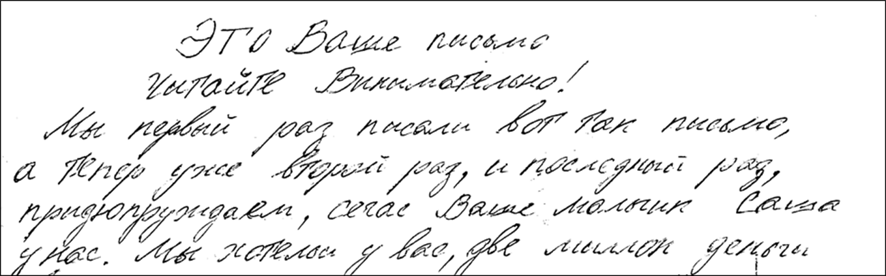 Это Ваше письмо
Читайте Внимательно!
Мы первый раз писали вот так письмо,
а тепер уже второй раз, и последный раз,
придюпруждаем, сечас Ваше мальчик Саша
у нас. Мы хотели у вас, две миллон деньги